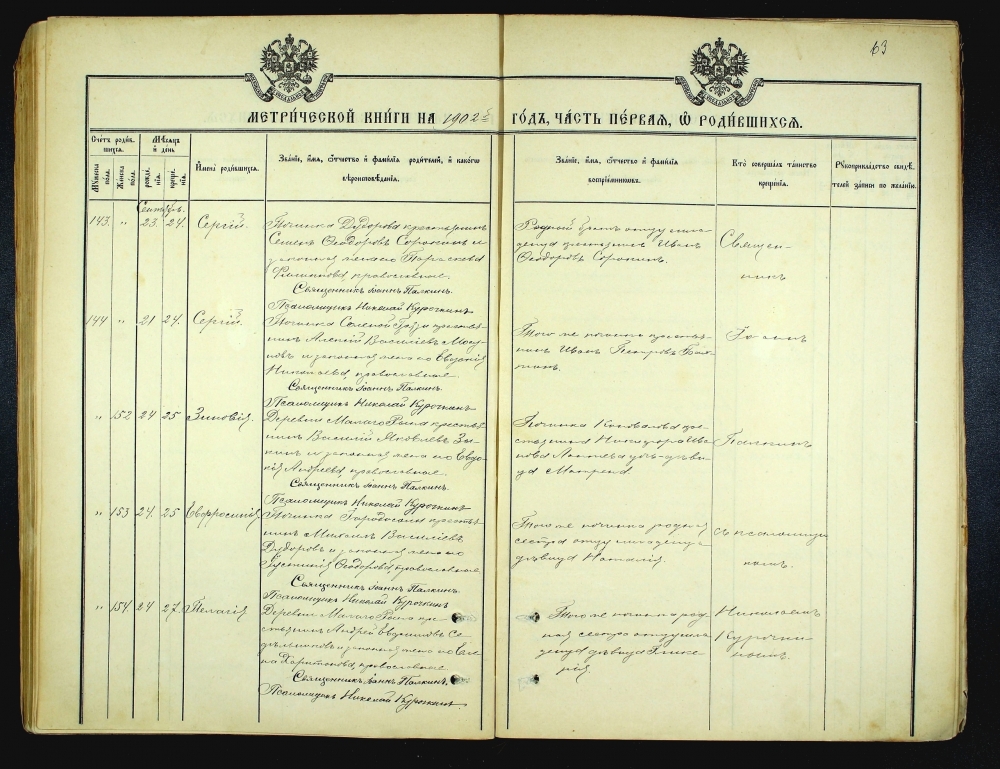 63
МЕТРИ́ЧЕСКОЙ КНИ́ГИ НА 1902й ГО́ДЪ, ЧА́СТЬ ПЕ́РВАЯ, Ѿ РОДИ́ВШИХСЯ.
Счетъ родив-
шихся.
Мѣсяцъ
и день
Мужска
пола.
Женска
пола.
рожде-
нія.
креще-
нія.
Имена родившихся.
Званіе, имя, отчество и фамилія родителей, и какого
вѣроисповѣданія.
Званіе, имя, отчество и фамилія
воспріемниковъ.
Кто совершалъ таинство
крещенія.
Рукоприкладство свидѣ-
телей записи по желанію.
Сентябрь.
143. " 23. 24. Сергій.
Починка Дуброва крестьянинъ
Семенъ Ѳеодоровъ Сорокинъ и
законная жена его Параскева
Филиппова, православные.
Священникъ Іоаннъ Палкинъ.
Псаломщикъ Николай Курочкинъ
Родной братъ отцу мла-
денца крестьянинъ Иванъ
Ѳеодоровъ Сорокинъ.
Священ-
никъ
144 " 21 24. Сергій.
Починка крестья-
нинъ Алексій Василіевъ
и законная жена его Евдокія
Николаева, православные.
Священникъ Іоаннъ Палкинъ.
Псаломщикъ Николай Курочкинъ
Того же починка крестья-
нинъ Иванъ Петровъ
Іоаннъ
" 152 24 25 Зиновія.
Деревни Малаго крестья-
нинъ Василій Яковлевъ Зы-
кинъ и законная жена его Евдо-
кія Андреева, православные.
Священникъ Іоаннъ Палкинъ.
Псаломщикъ Николай Курочкинъ
Починка Коновалова кре-
стьянина Никифора Ива-
нова дочь-дѣви-
ца Матрона
Палкинъ
" 153 24. 25 Евфросинія.
Починка крестья-
нинъ Михаилъ Василіевъ
Дубровъ и законная жена его
Іустинія Ѳеодорова, православные
Священникъ Іоаннъ Палкинъ.
Псаломщикъ Николай Курочкинъ
Того же починка родная
сестра отцу младенца
дѣвица Наталія.
съ псаломщи-
комъ.
" 154 24 27. Пелагія.
Деревни Малаго кре-
стьянинъ Андрей Се-
и законная жена его Еле-
на Харитонова, православные
Священникъ Іоаннъ Палкинъ.
Псаломщикъ Николай Курочкинъ.
Того же починка род-
ная сестра отцу мла-
денца дѣвица Глике-
рія.
Николаемъ
Курочки-
нымъ.